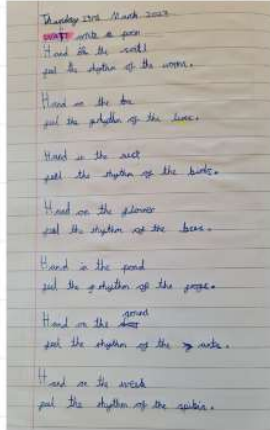 Thursday 23rd March 2023
write a poem
Hand on the soil
feel the rhythm of the worm.
Hand on the
feel the rhythm of the
Hand in the nest
feel the rhythm of the birds.
Hand on the flower
feel the rhythm of the bees.
Hand in the pond
feel the rhythm of the frogs.
Hand on the ground
feel the rhythm of the ants.
Hand on the web
feel the rhythm of the spider.